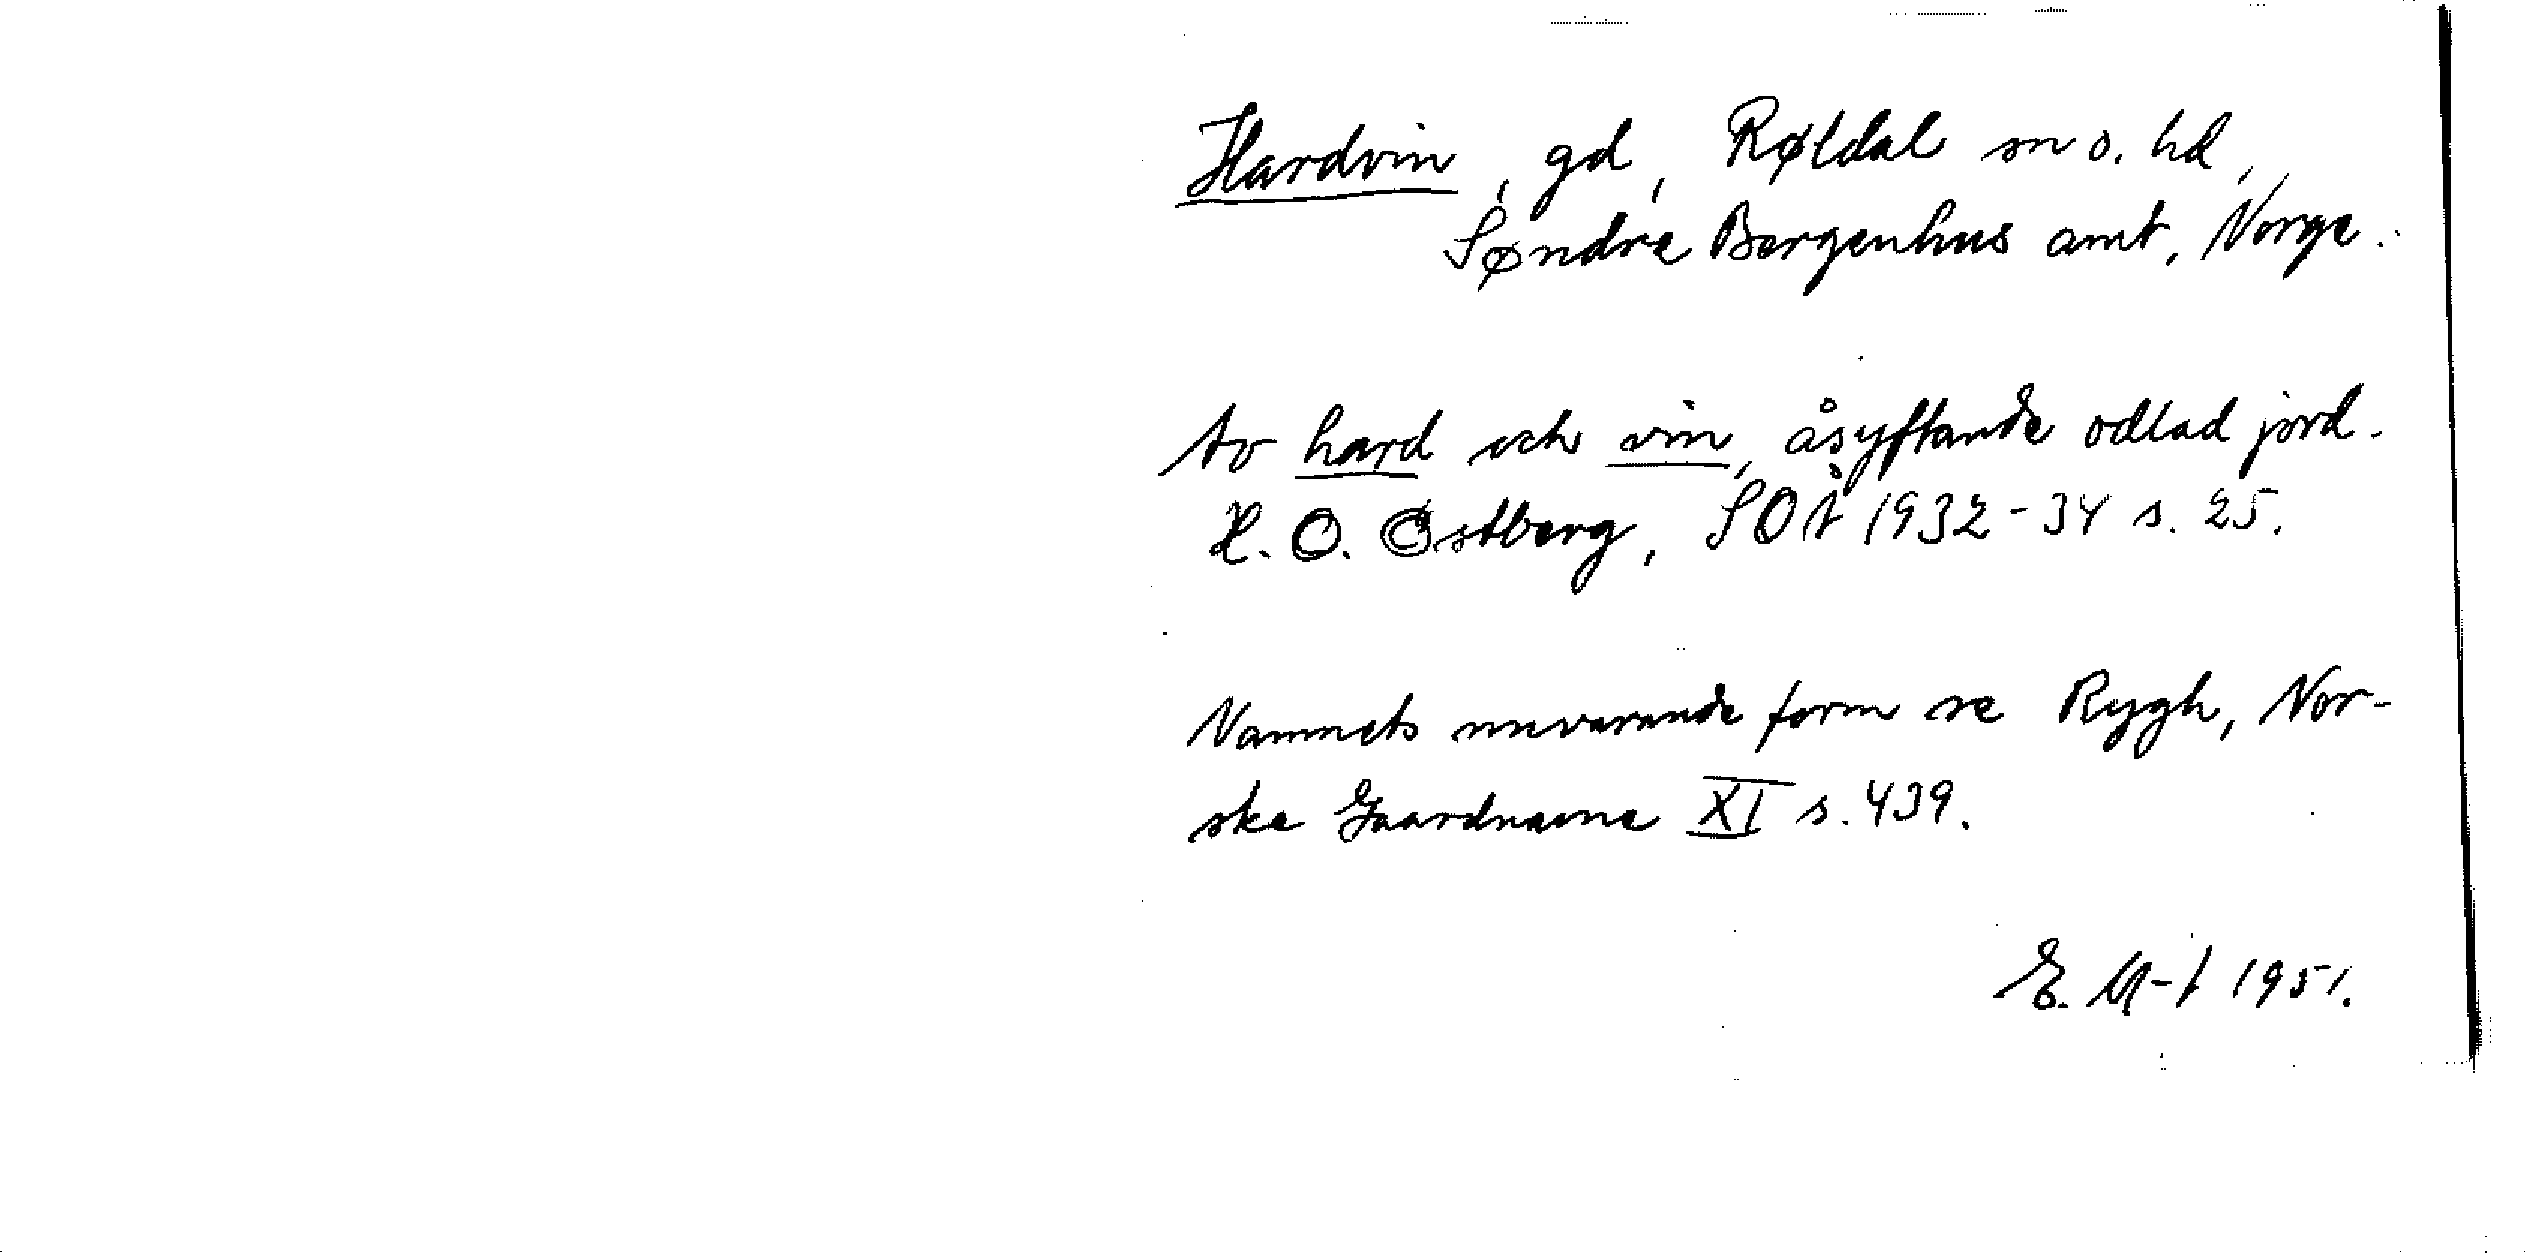 Hardvin, gd, Røldal sn o. hd,
Søndre Bergenhus amt, Norge.
Av hard och vin, åsyftande odlad jord.
H. O. Östberg, SOÅ 1932-34 s. 25.
Namnets nuvarande form se Rygh, Nor-
ske Gaardnavne XI s. 439.
E. M-t 1951.